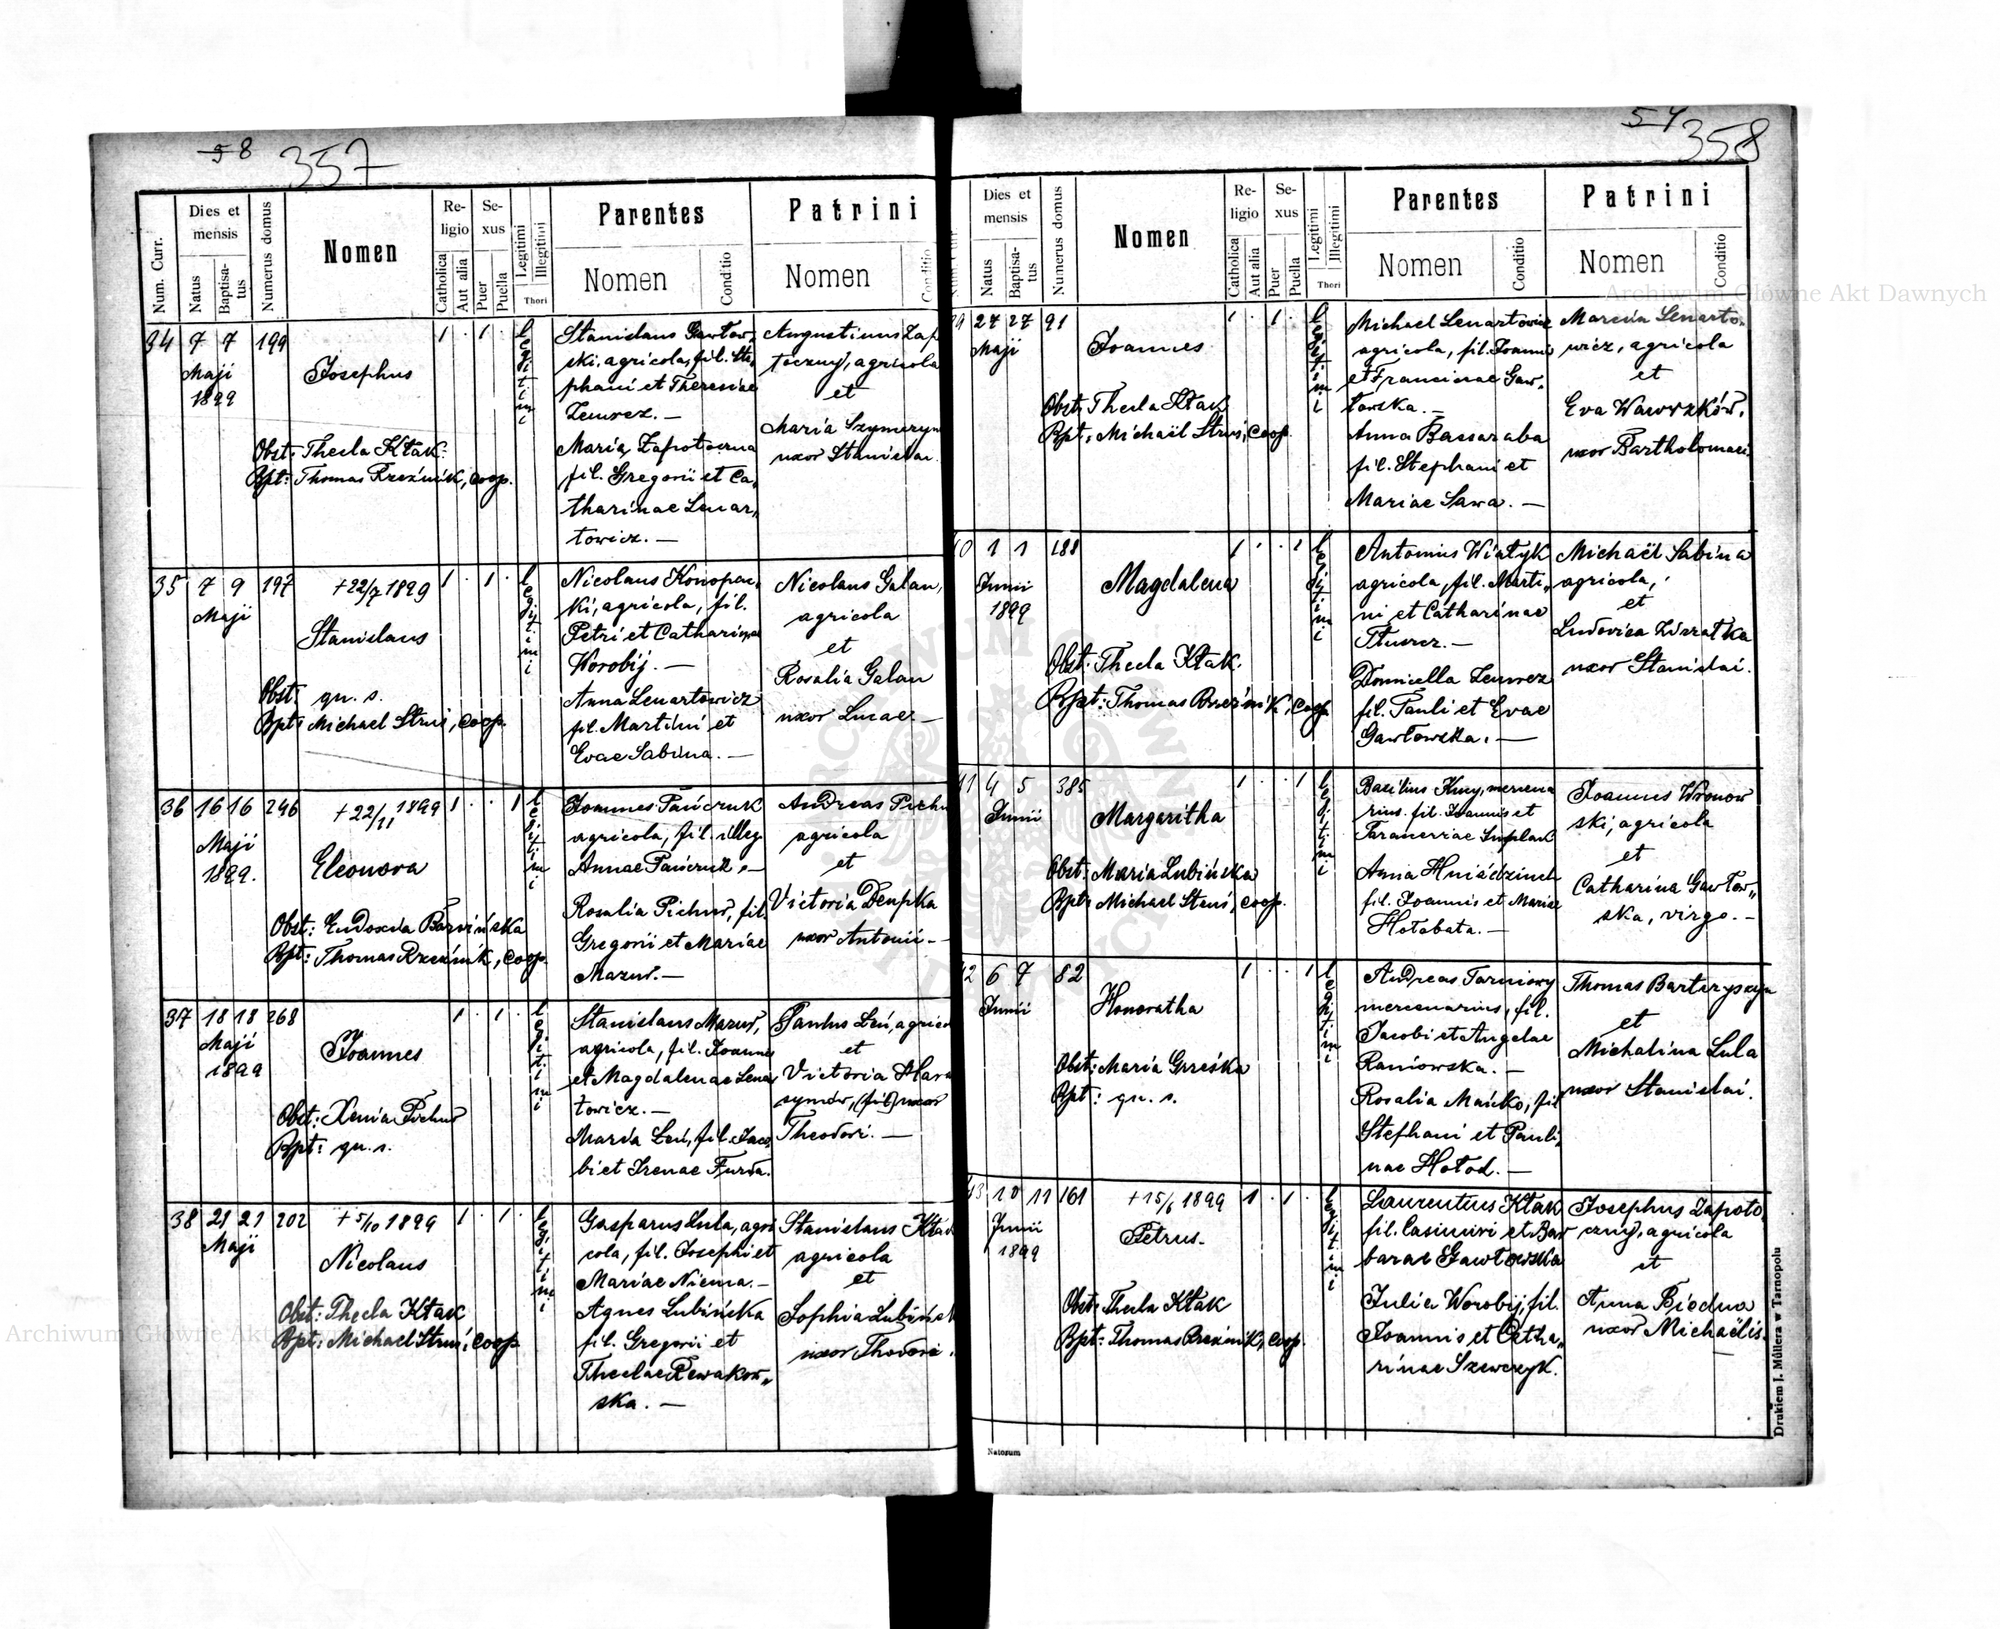 58 357
Num. Curr.
Dies et mensis
Natus
Baptisa-
tus
Numerus domus
Nomen
Re-
ligio
Catholica
Aut alia
Se-
xus
Puer
Puella
Legitimi
Illegitimi
Thori
Parentes
Nomen
Conditio
Patrini
Nomen
Conditio
34 7 7 199
Maji
1899
Josephus
Obst: Thecla Kłak.
Bpt: Thomas Rzeźnik, coop.
1 . 1 .
legitimi
Stanislaus Gawłow-
ski, agricola, fil. Ste
phani et Theresiae
Zemrez. —
Maria Zapotoczna
fil. Gregorii et Ca-
tharinae Lenar-
towicz. —
Augustinus Zap
toczny, agricola
et
Maria
uxor Stanislai.
35 7 9 197
Maji
+ 22/7 1899
Stanislaus
Obst: qu. s.
Bpt: Michael Struś, coop.
1 . 1 .
legitimi
Nicolaus Konopac-
ki, agricola, fil.
Petri et Catharinae
Worobij. —
Anna Lenartowicz
fil. Martini et
Evae Sabina. —
Nicolaus Galan,
agricola
et
Rosalia Galan
uxor Lucae —
36 16 16 246
Maji
1899.
+ 22/11 1899
Eleonora
Obst: Eudoxia Barwińska
Bpt: Thomas Rzeźnik, coop.
1 . . 1
legitimi
Joannes Pańczuk
agricola, fil. illeg.
Annae Pańczuk. —
Rosalia Pichur, fil.
Gregorii et Mariae
Mazur. —
Andreas Pichu
agricola
et
Victoria
uxor Antonii —
37 18 18 268
Maji
1899
Joannes
Obst: Xenia Pichur
Bpt: qu. s.
1 . 1 .
legitimi
Stanislaus Mazur,
agricola, fil. Joannis
et Magdalenae Lenar
towicz. —
Maria Leń, fil. Jaco-
bi et Irenae Furda.
Paulus Leń, agrico
et
Victoria Hara
symów, (fil) uxor
Theodori. —
38 21 21 202
Maji
+ 5/10 1899
Nicolaus
Obst: Thecla Kłak
Bpt: Michael Struś, coop.
1 . 1 .
legitimi
Gasparus Lula, agri
cola, fil. Josephi et
Mariae Niema. —
Agnes Lubińska
fil. Gregorii et
Theclae Rewakow-
ska. —
Stanislaus Kłak
agricola
et
Sophia Lubińsk
uxor Thodori.
54 358
Dies et
mensis
Natus
Baptisa-
tus
Numerus domus
Nomen
Re-
ligio
Catholica
Aut alia
Se-
xus
Puer
Puella
Legitimi
Illegitimi
Thori
Parentes
Nomen
Conditio
Patrini
Nomen
Conditio
39 27 27 91
Maji
Joannes
Obst: Thecla Kłak
Bpt: Michaël Struś, coop.
1 . 1 .
legitimi
Michael Lenartowicz
agricola, fil. Joannis
et Francicae Gaw-
łowska. —
Anna Bassaraba
fil. Stephani et
Mariae Sawa. —
Marcin Lenarto-
wicz, agricola
et
Eva Wawrzków,
uxor Bartholomaei
40 1 1 188
Junii
1899
Magdalena
Obst: Thecla Kłak.
Bpt: Thomas Rzeźnik, coop.
1 . . 1
legitimi
Antonius Wiatyk
agricola, fil. Marti-
ni et Catharinae
Tłuszcz. —
Domicella Zemrez
fil. Pauli et Evae
Gawłowska. —
Michaël Sabina
agricola,
et
Ludovica
uxor Stanislai.
41 4 5 385
Junii
Margaritha
Obst: Maria Lubińska
Bpt: Michael Struś, coop.
1 . . 1
legitimi
Basilius Kucy, mercena
rius. fil. Joannis et
Anna
fil. Joannis et Mariae
Hołabata. —
Joannes Wronow
ski, agricola
et
Catharina Gawłow-
ska, virgo. —
42 6 7 82
Junii
Honoratha
Obst: Maria Grześka
Bpt: qu. s.
1 . . 1
legitimi
Andreas Tarnowy
mercenarius, fil.
Jacobi et Angelae
Raniowska. —
Rosalia Mańko, fil
Stephani et Pauli-
nae Hołod. —
Thomas Bartczyszyn
et
Michalina Lula
uxor Stanislai.
43 10 11 161
Junii
1899
+ 15/6 1899
Petrus.
Obst: Thecla Kłak
Bpt: Thomas Rzeźnik, coop.
1 . 1 .
legitimi
Laurentius Kłak
fil. Casimiri et Bar
barae Gawłowska
Julia Worobij, fil.
Joannis et Catha-
rinae Szewczyk.
Josephus Zapoto-
czny, agricola
et
Anna Biedna
uxor Michaëlis.
Natorum
Drukiem J. Müllera w Tarnopolu
Archiwum Główne Akt Dawnych
Archiwum Główne Akt Dawnych